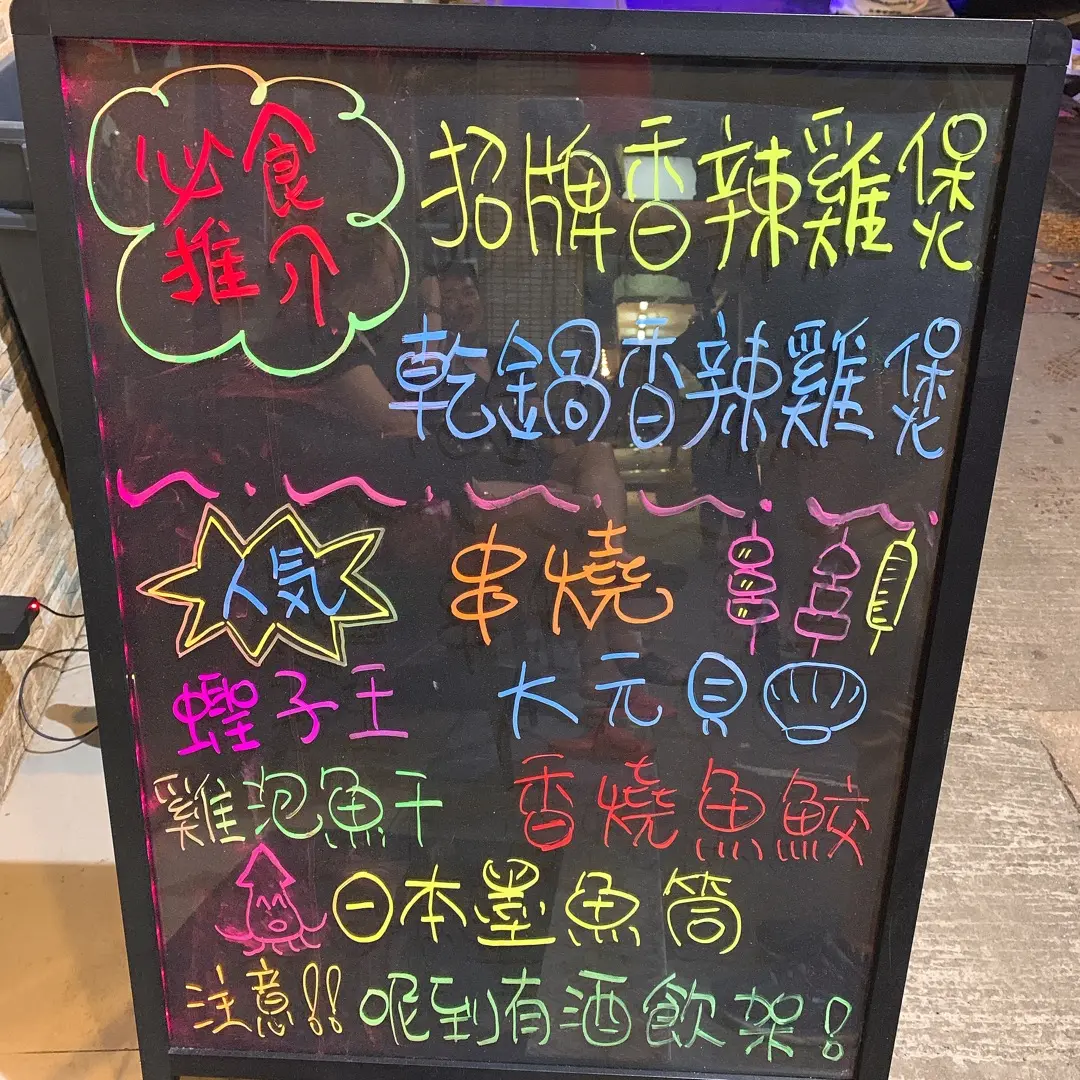 必食
推介
招牌香辣雞煲
乾鍋香辣雞煲
人気
串燒
蟶子王
大元貝
雞泡魚干
香燒魚鮫
日本墨魚筒
注意!! 呢到有酒飲架!